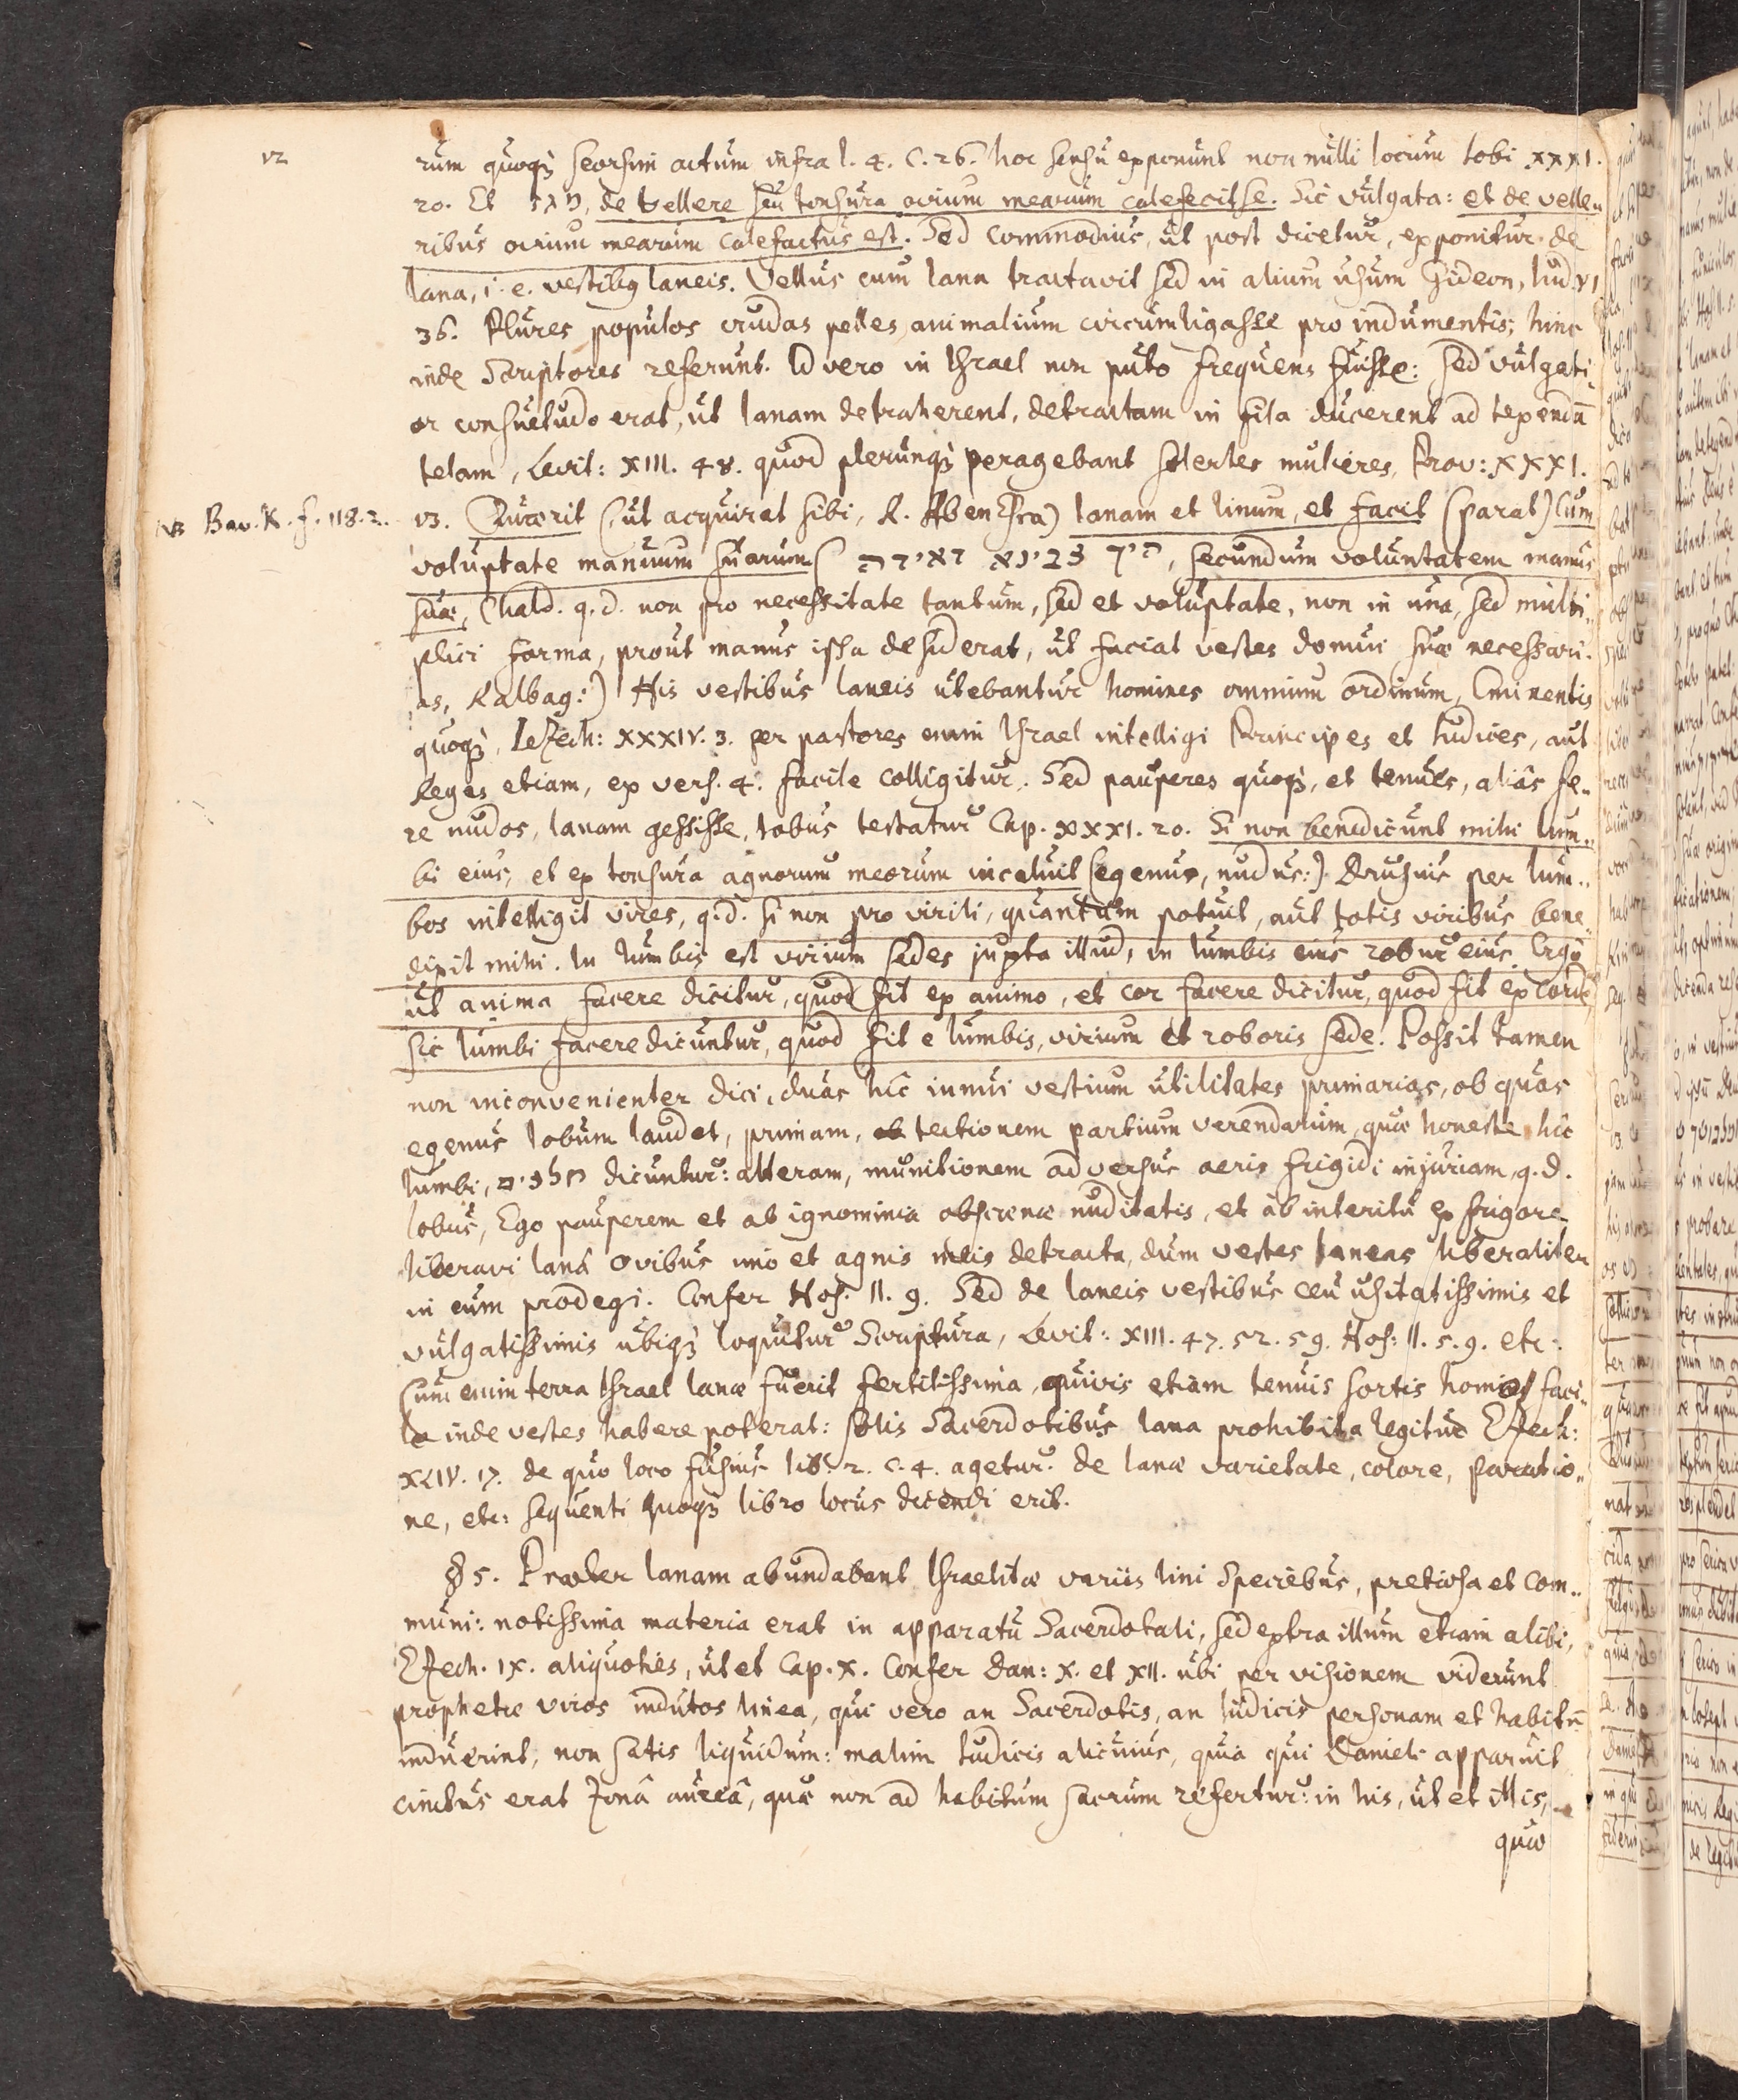 12
rum quoq; seorsim actum infra l. 4. c. 26. hoc sensu exponunt non nulli locum Iobi XXXI.
20. Et מגז, de vellere seu tonsura ovium mearum calefecisse. Sic vulgata: et de velle..
ribus ovium mearum calefactus est. Sed commodius, ut post dicetur, exponitur de
lana, i. e. vestibus laneis. Vellus cum lana tractavit sed in alium usum Gideon, Iud. VI
36. Plures populos crudas pelles animalium circumligasse pro indumentis; hinc
inde Scriptores referunt. Id vero in Israel non puto frequens fuisse: sed vulgati..
or consuetudo erat, ut lanam detraherent, detractam in fila ducerent ad texendā
telam, Levit: XIII. 48. quod plerunq; peragebant solertes mulieres, Prov: XXXI.
NB Bav. K. f. 118. 2.
13. Quærit (ut acquirat sibi, R. Aben Esra) lanam et linum, et facit (parat) cum
voluptate manuum suarum (היך צבינא דאידה, secundum voluntatem manus
suæ, Chald. q. d. non pro necessitate tantum, sed et voluptate, non in una, sed multi..
plici forma, prout manus ipsa desiderat, ut faciat vestes domui suæ necessari..
as, Ralbag:) His vestibus laneis utebantur homines omnium ordinum, Eminentis
quoq;, Iezech: XXXIV. 3. per pastores enim Israel intelligi Principes et Iudices, aut
Reges etiam, ex vers. 4. facile colligitur. Sed pauperes quoq;, et tenues, aliàs fe..
re nudos, lanam gessisse, Iobus testatur Cap. XXXI. 20. Si non benedicunt mihi lum..
bi eius, et ex tonsura agnorum meorum incaluit (egenus, nudus:). Drusius per lum..
bos intelligit vires, q. d. si non pro virili, quantum potuit, aut totis viribus bene..
dixit mihi. In lumbis est virium sedes juxta illud, in lumbis eius robur eius. Ergo
ut anima facere dicitur, quod fit ex animo, et cor facere dicitur, quod fit ex corde,
sic lumbi facere dicuntur, quod fit e lumbis, virium et roboris sede. Possit tamen
non inconvenienter dici, duas hîc innui vestium utilitates primarias, ob quas
egenus Iobum laudet, primam, ob tectionem partium verendarum, quæ honeste hîc
lumbi, חלצים dicuntur: alteram, munitionem adversus aeris frigidi injuriam, q. d.
Iobus, Ego pauperem et ab ignominia obscœnæ nuditatis, et ab interitu ex frigore
liberavi lanâ ovibus imo et agnis meis detracta, dum vestes laneas liberaliter
in eum prodegi. Confer Hos. II. 9. Sed de laneis vestibus ceu usitatissimis et
vulgatissimis ubiq; loquitur Scriptura, Levit: XIII. 47. 52. 59. Hos: II. 5. 9. etc:
Cum enim terra Israel lanæ fuerit fertilissima, quivis etiam tenuis sortis homo faci..
le inde vestes habere poterat: solis Sacerdotibus lana prohibita legitur Ezech:
XLIV. 17. de quo loco fusius lib. 2. c. 4. agetur. De lanæ varietate, colore, paratio..
ne, etc: sequenti quoq; libro locus dicendi erit.
§ 5. Præter lanam abundabant Israelitæ variis lini Speciebus, pretiosa et com..
muni: notissima materia erat in apparatu Sacerdotali, sed extra illum etiam alibi,
Ezech. IX. aliquoties, ut et Cap. X. Confer Dan: X. et XII. ubi per visionem viderunt
prophetæ viros indutos linea, qui vero an Sacerdotis, an Iudicis personam et habitū
induerint, non satis liquidum: malim Iudicis alicuius, quia qui Danieli apparuit
cinctus erat Zonâ aureâ, quæ non ad habitum sacrum refertur: in his, ut et illis,
quæ